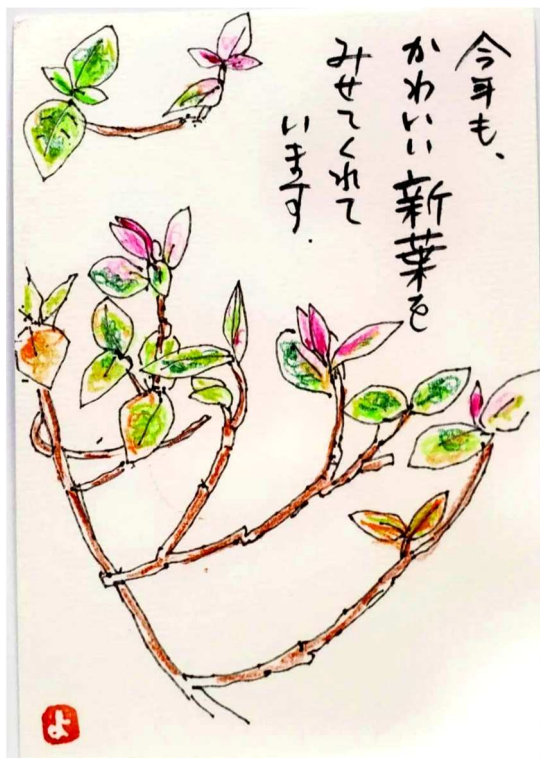 今年も、
かわいい新葉を
みせてくれて
います.
よ